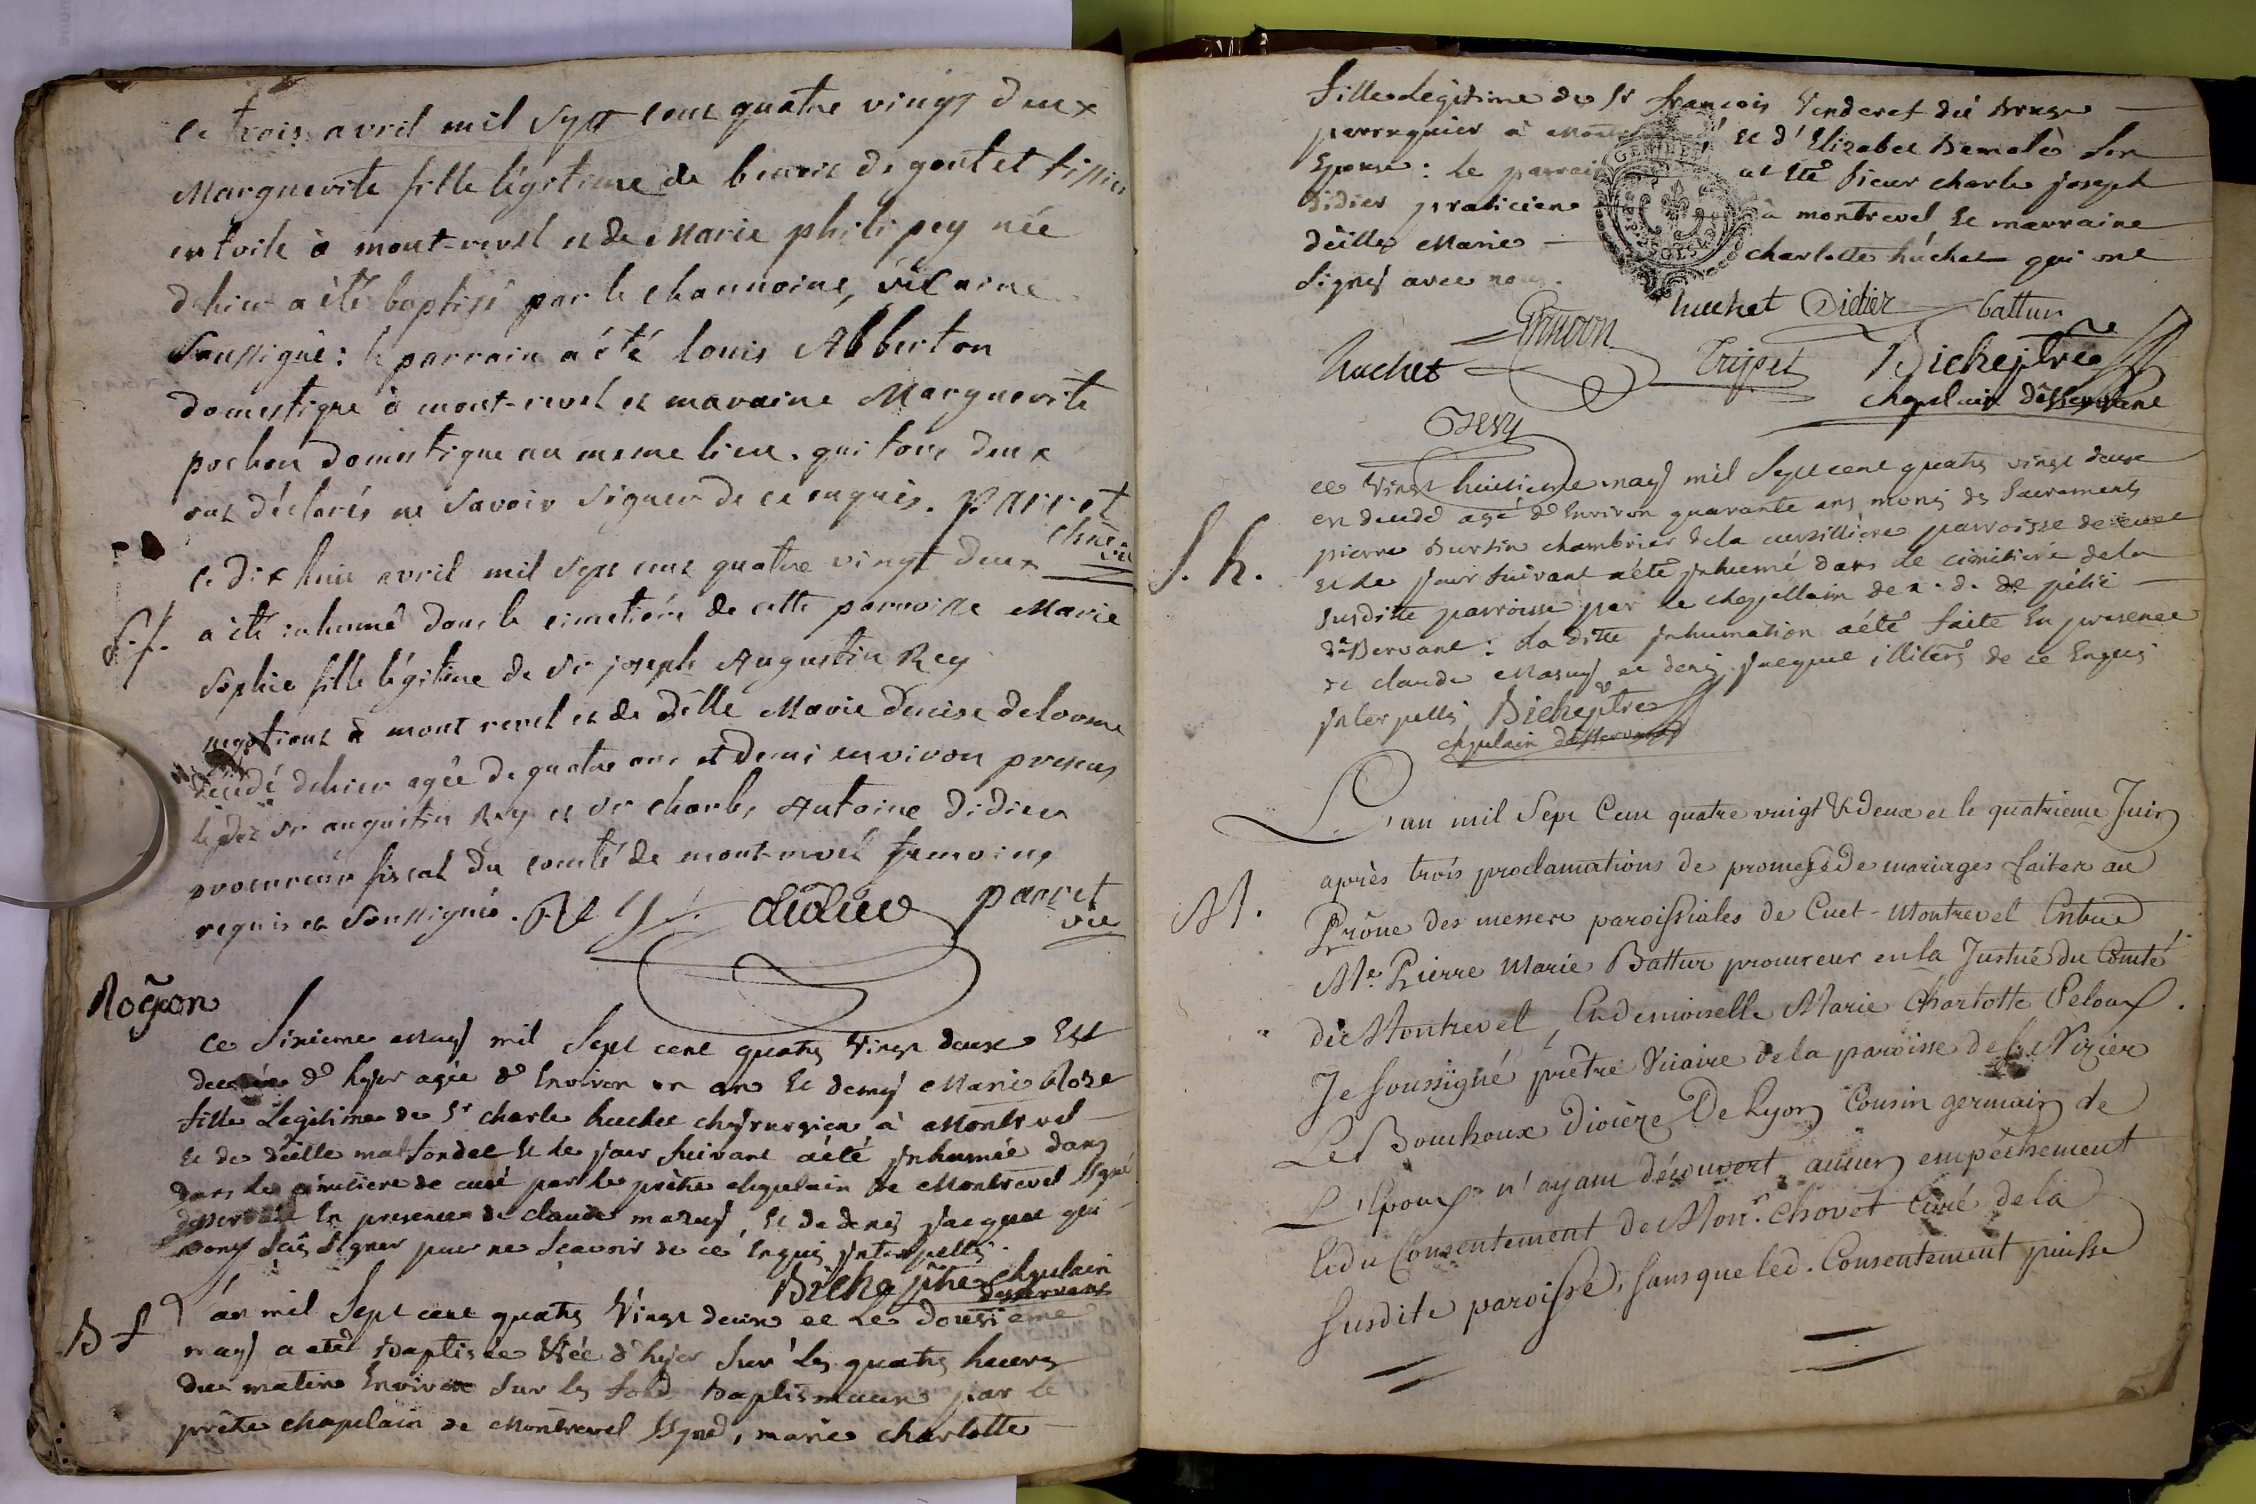 ce trois avril mil sept cent quatre vingt deux
Marguerite fille légitime de benoit de goutet tissier
en toile à mont-revel et de Marie philipey née
d'hier a été baptisé par le channoine, vicaire
soussigné : le parrain a été louis Abberton
domestique à mont-revel et maraine Marguerite
pochon domestique au meme lieu. qui tous deux
ont déclarés ne savoir signer de ce enquis. parret
chne vic
ce dix huit avril mil sept cent quatre vingt deux
a été inhumé dans le cimetière de cette parroisse Marie
sophie fille légitime de Sr joseph Augustin Rey
negotiant à mont revel et de dlle Marie Denise delorme
décédé d'hier agée de quatre ans et demi environ présens
ledit Sr augustin Rey et Sr charles Antoine Didier
procureur fiscal du comté de mont-revel temoins
requis et soussignés. Rey didier parret
vic
ce sixieme may mil sept cent quatre vingt deux Est
decedée d'hyer agée d'environ un an et demy Marie Rose
fille Legitime de Sr charle huchet chyrurgien à Montrevel
et de dlle et le jour suivant a été jnhumée dans
dans le cimitiere de cuet par le prètre chapelain de Montrevel ssigné
desservant En presence de claude mazuy, et de denis jacquet qui
signer pour ne sçavoir de ce enquis jnterpellés.
Biche ptre chapelain
desservant
B f L'an mil sept cent quatre vingt deux et Le douzième
may a eté Baptisée Née d'hyer sur les quatre heures
du matin Environ sur les fonds Baptismaux par le
prètre chapelain de Montrevel ssigné, marie charlotte
fille Legitime de Sr françois Venderet dit
perruquier à et d'Elizabet son
Epouse : Le parrain a eté sieur charle joseph
Didier praticien à montrevel et marraine
dlle Marie charlotte huchet qui ont
signés avec nous.
huchet Didier battur
huchet Tripet Biche ptre
chapelain desservant
ce vingt huitieme may mil sept cent quatre vingt deux
est decedé agé d'Environ quarante ans munis des sacrements
pierre Burtin chambrier de la parroisse de cuet
S. h. et le jour suivant a été jnhumé dans le cimitiere de la
susditte parroisse par le chapellain de n. d. de pitié
desservant : La ditte jnhumation a été faite En presence
de claude Mazuy et denis jacquet illiterés de ce Enquis
jnterpellés Biche ptre
chapelain desservant
L'an mil sept Cent quatre vingt & deux et le quatrieme Juin
après trois proclamations de promesse de mariages faites au
M. Prône des messes paroissiales de Cuet-Montrevel Entre
Me. Pierre Marie Battur procureur en la Justice du Comté
de Montrevel, Et demoiselle Marie Charlotte Peloux.
Je soussigné prêtre Vicaire de la paroisse de St Nizier
Le Bouchoux Diocèse De Lyon Cousin germain de
L'Epoux n'ayant découvert aucun empêchement
Et du Consentement de Monr. Chovet Curé de la
susdite paroisse, sans que led. Consentement puisse